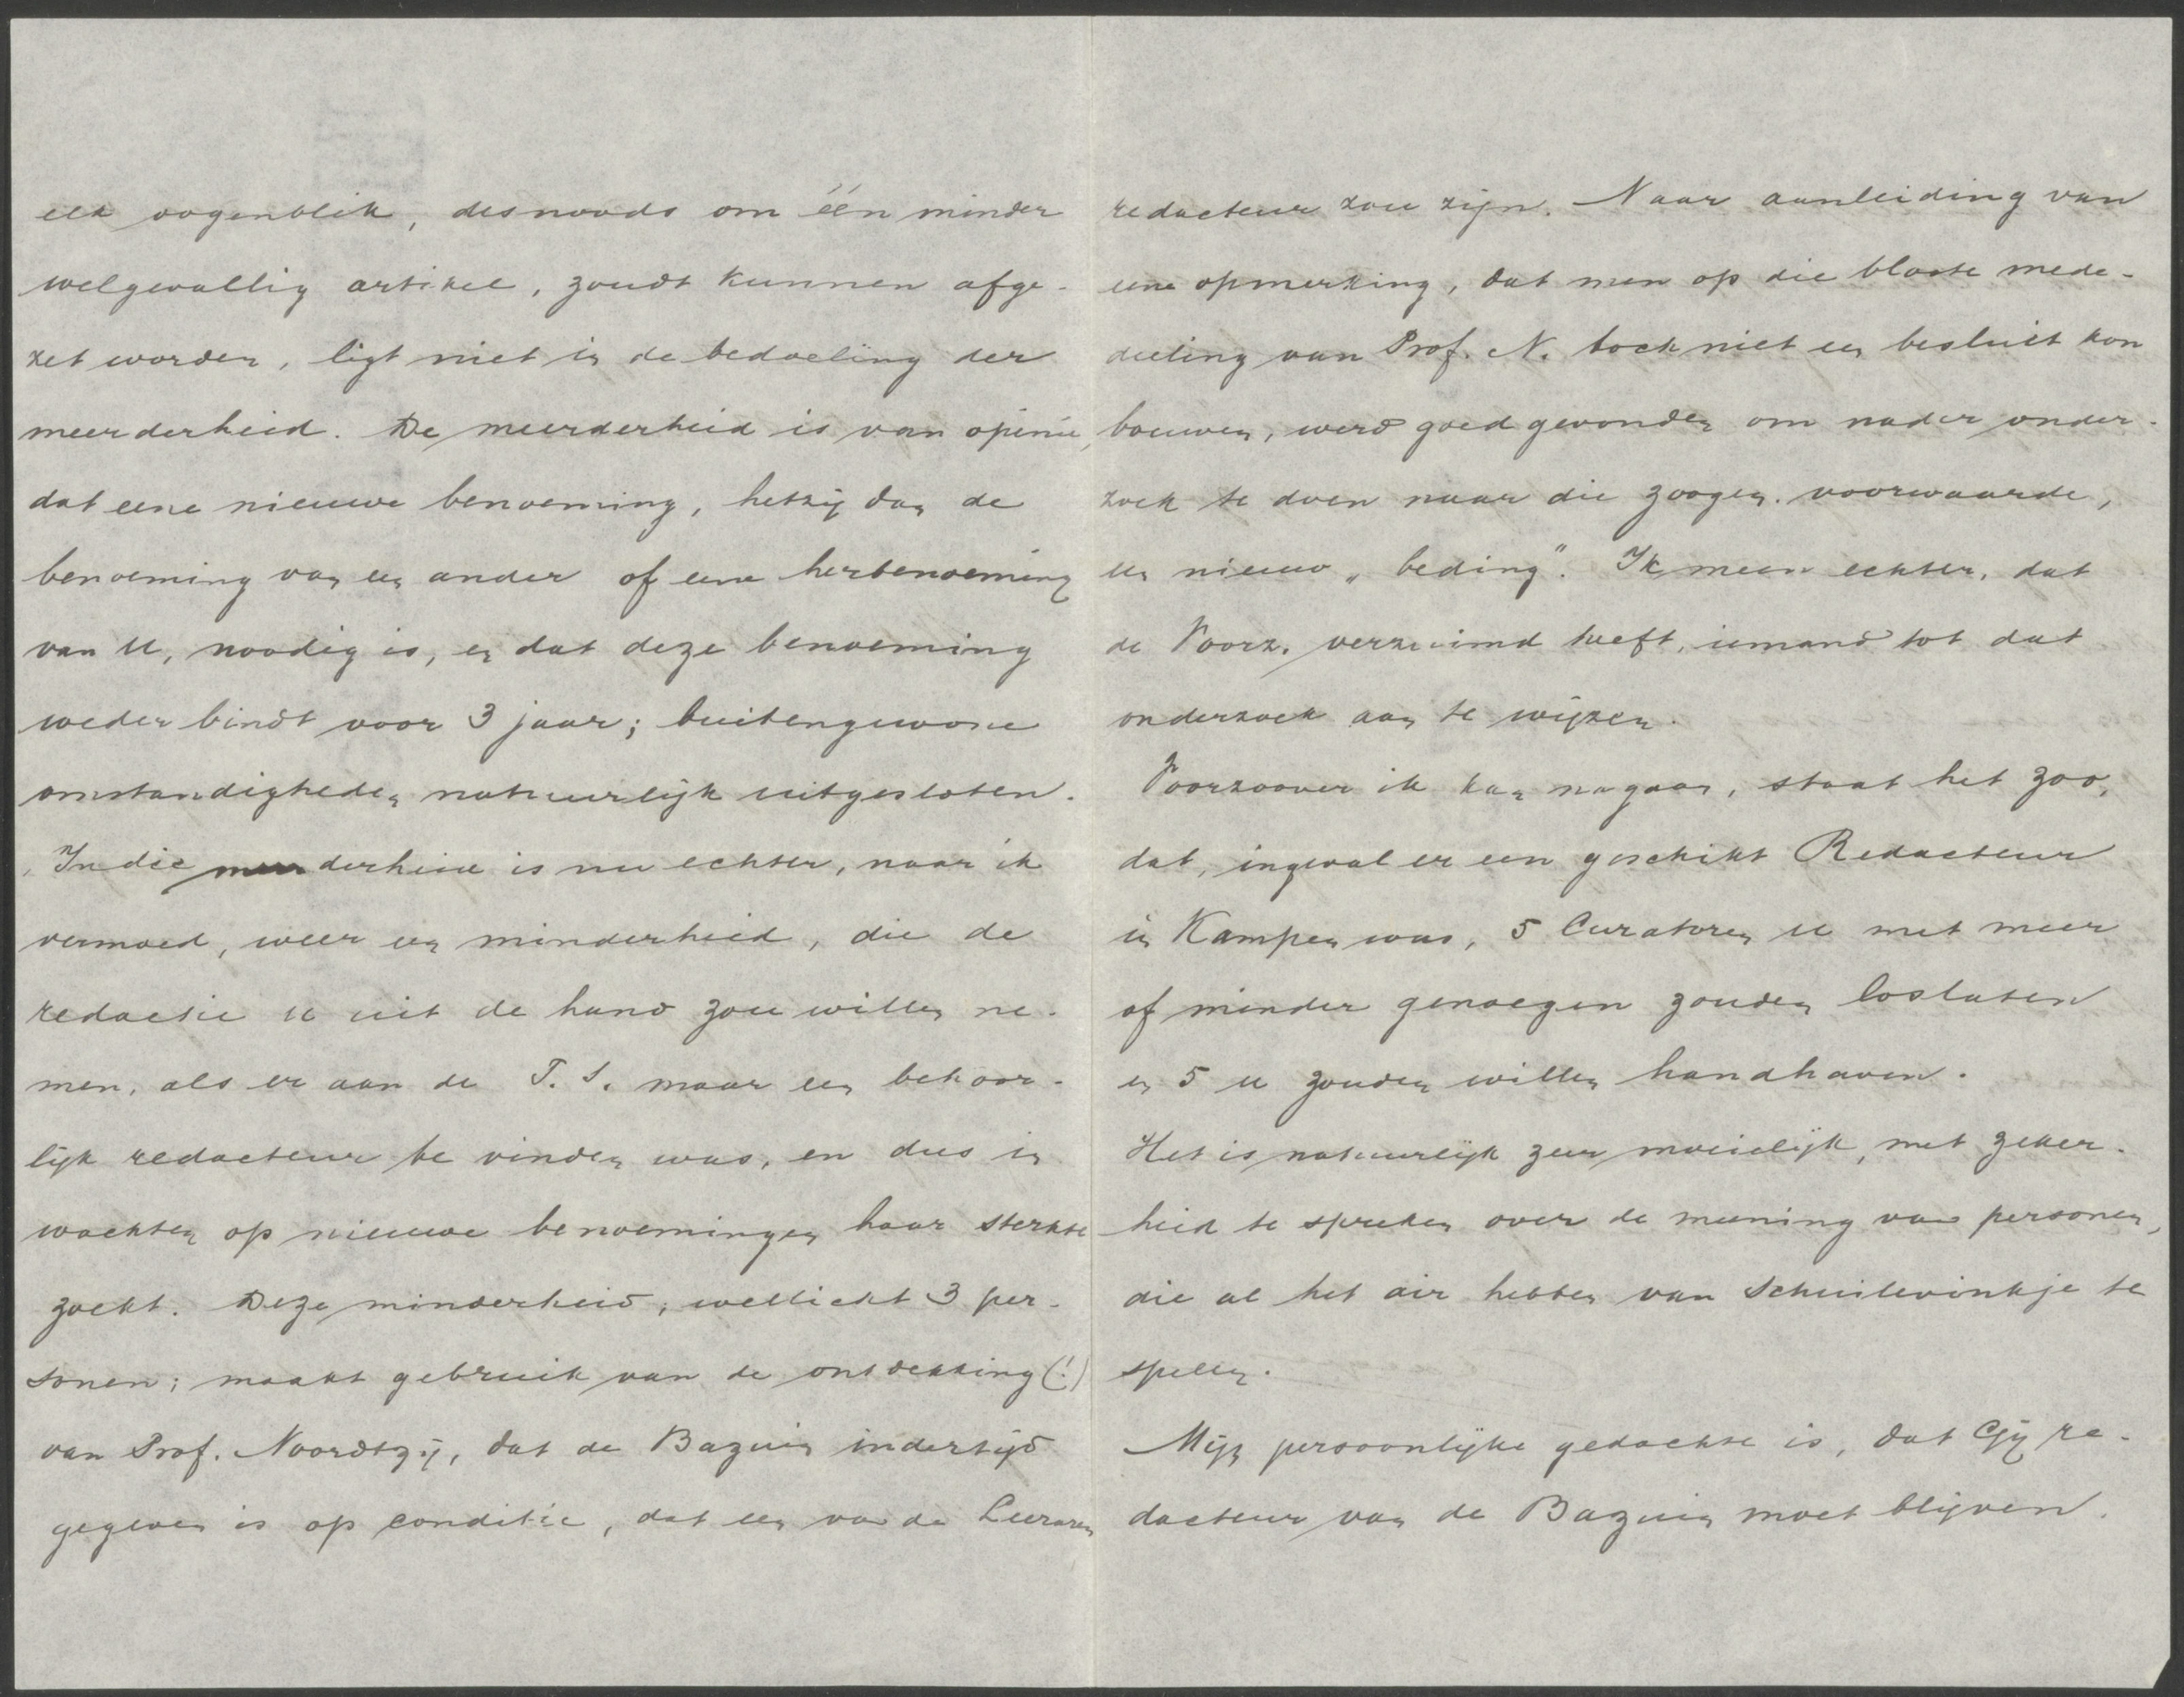 elk oogenblik, desnoods om één minder
welgevallig artikel, zoudt kunnen afge-
zet worden, ligt niet in de bedoeling der
meerderheid. De meerderheid is van opinie,
dat eene nieuwe benoeming, hetzij dan de
benoeming van een ander of eene herbenoeming
van U, noodig is, en dat deze benoeming
weder bindt voor 3 jaar; buitengewone
omstandigheden natuurlijk uitgesloten.
In die meerderheid is nu echter, naar ik
vermoed, weer een minderheid, die de
redactie U uit de hand zou willen ne-
men, als er aan de T. S. maar een behoor-
lijk redacteur te vinden was, en dus in
wachten op nieuwe benoemingen haar sterkte
zoekt. Deze minderheid, wellicht 3 per-
sonen; maakt gebruik van de ontdekking (!)
van Prof. Noordtzij, dat de Bazuin indertijd
gegeven is op conditie, dat een van de Leeraren
redacteur zou zijn. Naar aanleiding van
eene opmerking, dat men op die bloote mede-
deeling van Prof. N. toch niet een besluit kon
bouwen, werd goedgevonden om nader onder-
zoek te doen naar die zoogen. voorwaarde,
een nieuw „beding". Ik meen echter, dat
de Voorz. verzuimd heeft, iemand tot dat
onderzoek aan te wijzen.
Voorzoover ik kan nagaan, staat het zoo,
dat, ingeval er een geschikt Redacteur
in Kampen was, 5 Curatoren U met meer
of minder genoegen zouden loslaten
en 5 U zouden willen handhaven.
Het is natuurlijk zeer moeielijk, met zeker-
heid te spreken over de meening van personen,
die al het air hebben van Schuilevinkje te
spelen.
Mijn persoonlijke gedachte is, dat Gij re-
dacteur van de Bazuin moet blijven.